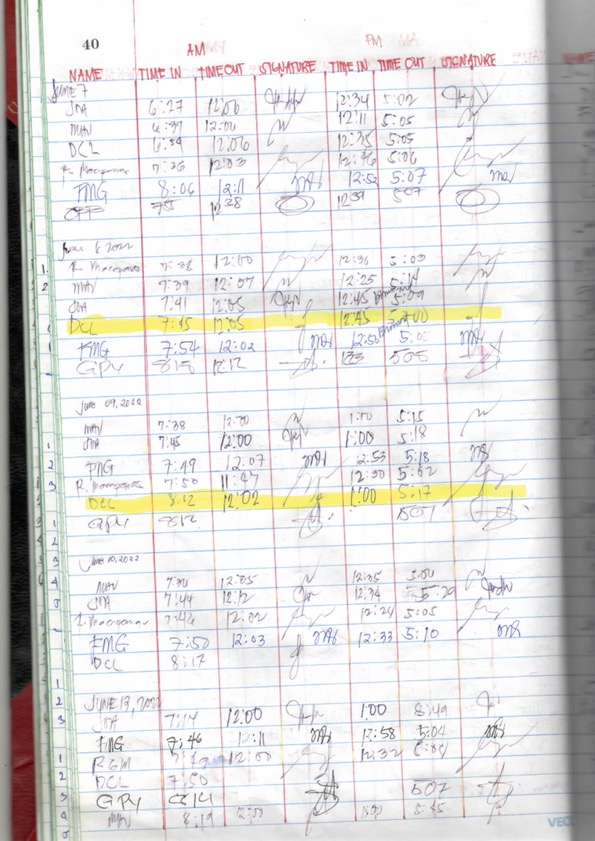 40
AM PM
NAME TIME IN TIME OUT SIGNATURE TIME IN TIME OUT SIGNATURE
JUNE 7
JTA 6:27 12:06 12:34 5:02
MAV 6:39 12:06 12:11 5:05
DCL 6:59 12:06 12:35 5:05
R. Macapanas 7:36 12:03 12:46 5:06
FMG 8:06 12:11 12:52 5:07
12:38 12:39 507
June 8 2022
R. Macapanas 7:38 12:00 12:36 5:03
MAV 7:39 12:07 12:25 5:14
JTA 7:41 12:05 12:45 5:09
DCL 7:45 12:05 12:45 5:00
FMG 7:54 12:02 12:50
GPY 815 12:12 505
JUNE 09, 2022
MAV 7:38 12:00 1:00 5:15
JTA 7:45 12:00 1:00 5:18
FMG 7:49 12:07 12:53 5:18
R. Macapanas 7:50 11:47 12:50 5:02
DCL 8:12 12:02 1:00 5:17
GPY 812
JUNE 10, 2022
MAV 7:36 12:05 12:35 5:00
JTA 7:44 12:12 12:34 5:20
R. Macapanas 7:46 12:02 12:24 5:05
FMG 7:50 12:03 12:33 5:10
DCL 8:17
JUNE 13, 2022
JTA 7:14 12:00 1:00 8:49
FMG 7:46 12:11 12:58 5:04
RGM 12:00 12:32
DCL 7:50
GPY 814 507
MAV 8:19 12:00 1:00 5:45
VECO